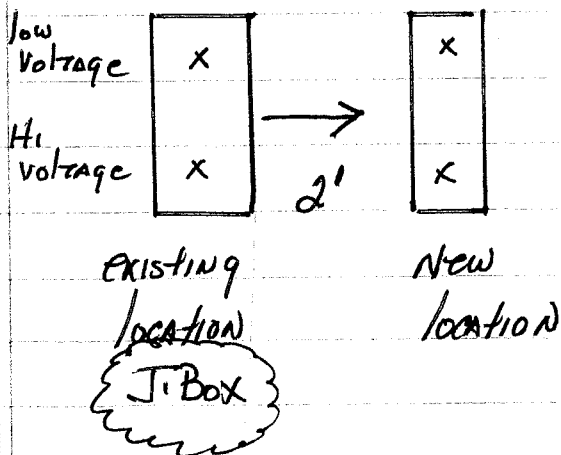 low
voltage
x
x
Hi
voltage
x
x
2'
existing
location
New
location
J. Box